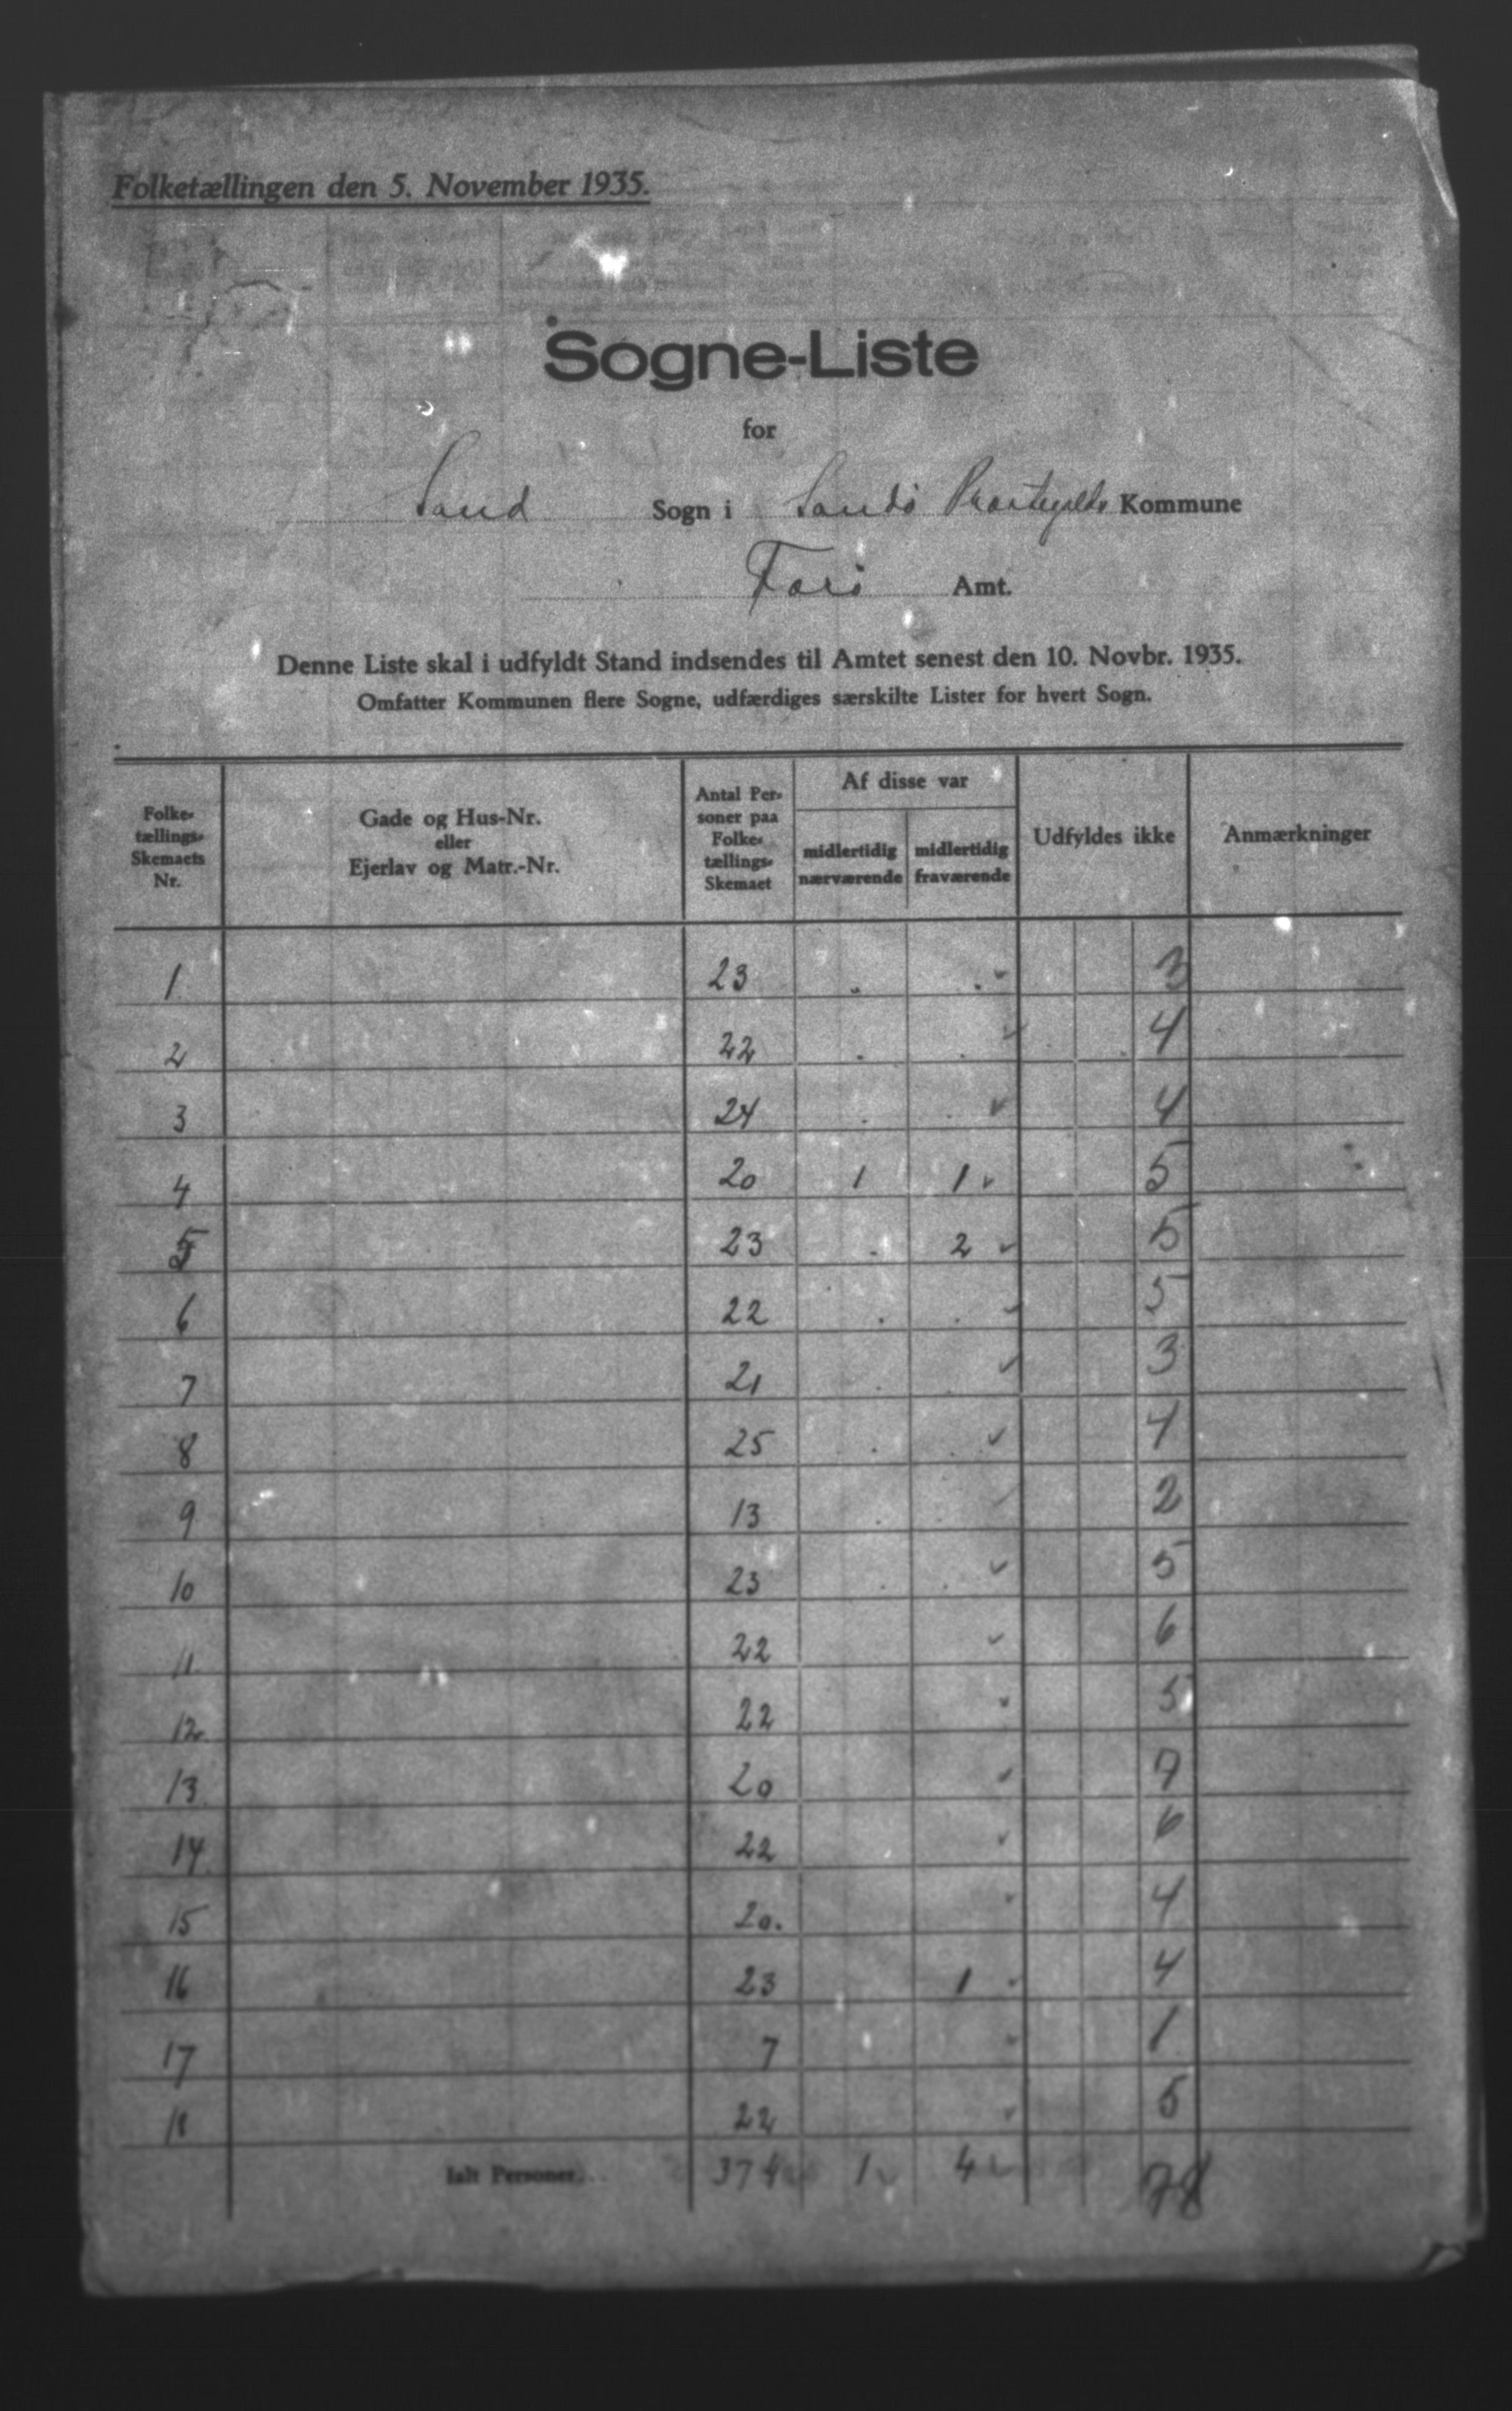 Folketællingen den 5. November 1935.
Sogne-Liste
for
Sand Sogn i Sandø Præstegælds Kommune
Færø Amt.
Denne Liste skal i udfyldt Stand indsendes til Amtet senest den 10. Novbr. 1935.
Omfatter Kommunen flere Sogne, udfærdiges særskilte Lister for hvert Sogn.
Folke-
tællings-
Skemaets
Nr.
Gade og Hus-Nr.
eller
Ejerlav og Matr.-Nr.
Antal Per-
soner paa
Folke-
tællings-
Skemaet
Af disse var
midlertidig
nærværende
midlertidig
fraværende
Udfyldes ikke
Anmærkninger
1 23 . . 3
2 22 . . 4
3 24 . . 4
4 20 1 1 5
5 23 . 2 5
6 22 . . 5
7 21 . 3
8 25 . . 4
9 13 . . 2
10 23 . . 5
11 22 6
12 22 5
13 20 7
14 22 6
15 20. 4
16 23 1 4
17 7 1
18 22 5
Ialt Personer... 374 1 4 78